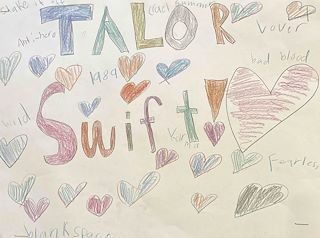 shake it off
cruel summer
TALOR
Lover
Anti-hero
1989
bad blood
Swift!
Karma
Fearless
blank space